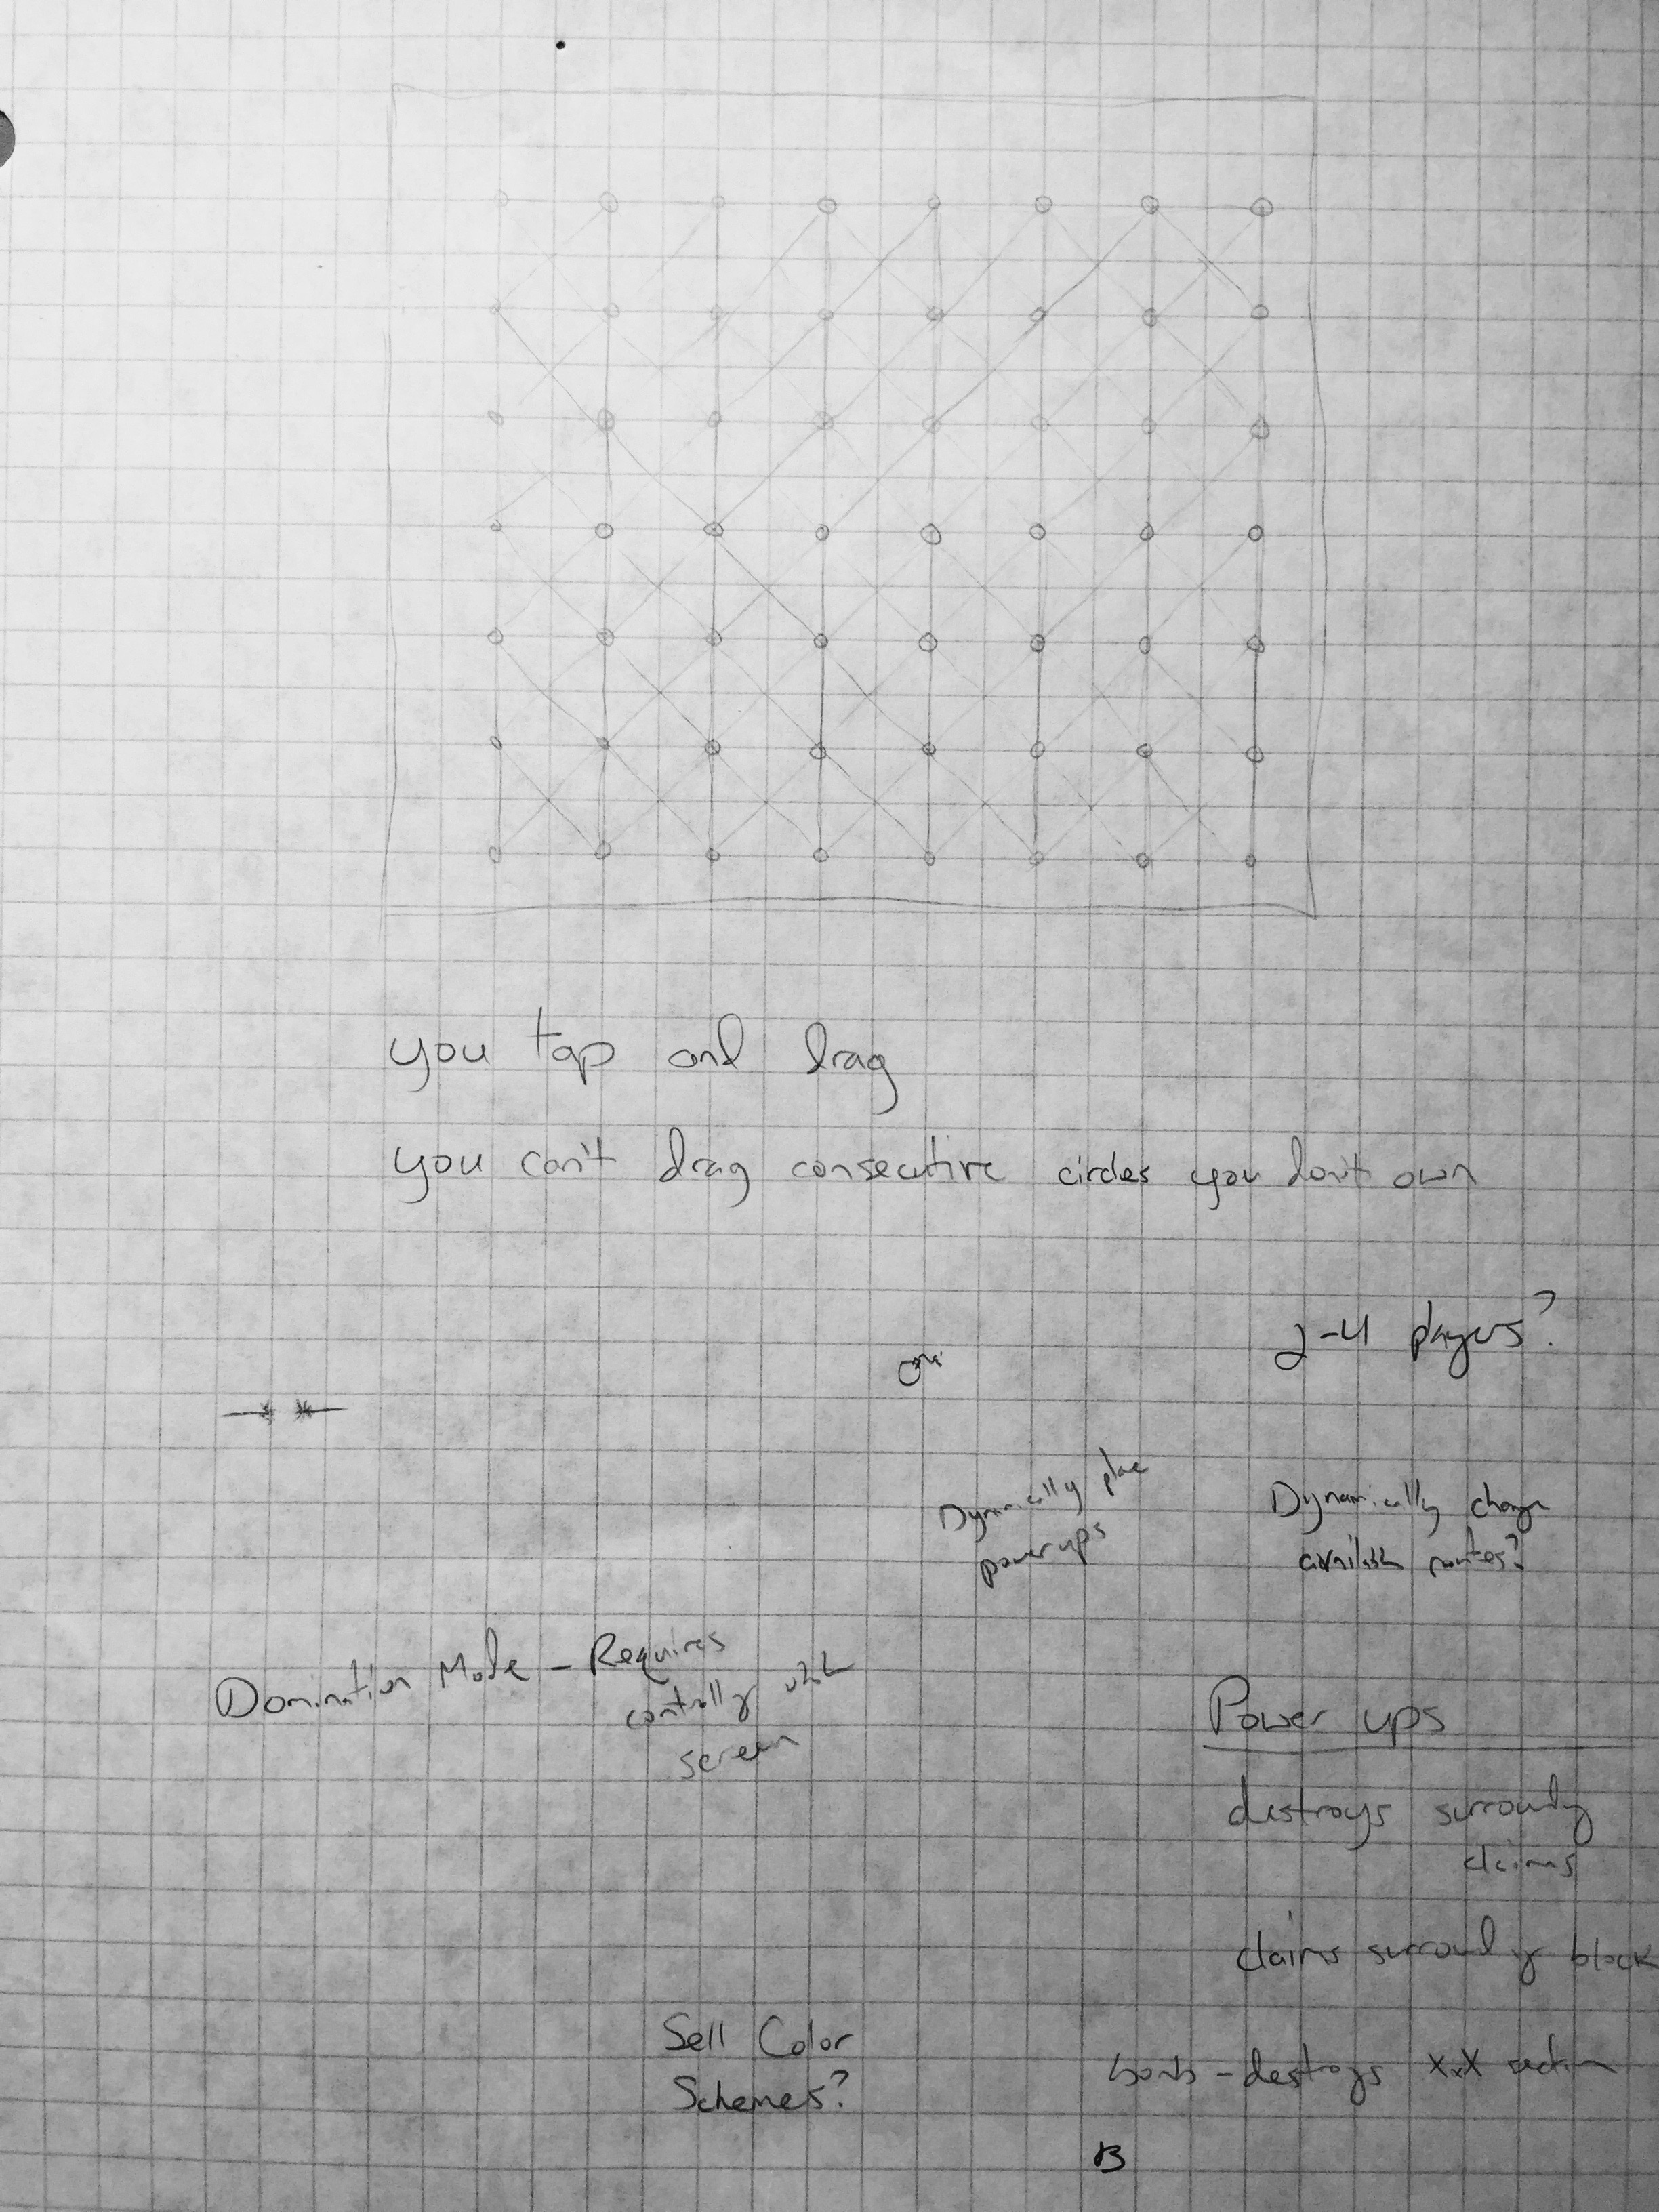 you tap and drag
you can't drag consecutive circles you don't own
2-4 players?
Dynamically place
powerups
Dynamically change
available routes?
Domination Mode - Requires
controlling whole
screen
Power ups
destroys surrounding
claims
claims surrounding block
Sell Color
Schemes?
bomb - destroys XxX section
B